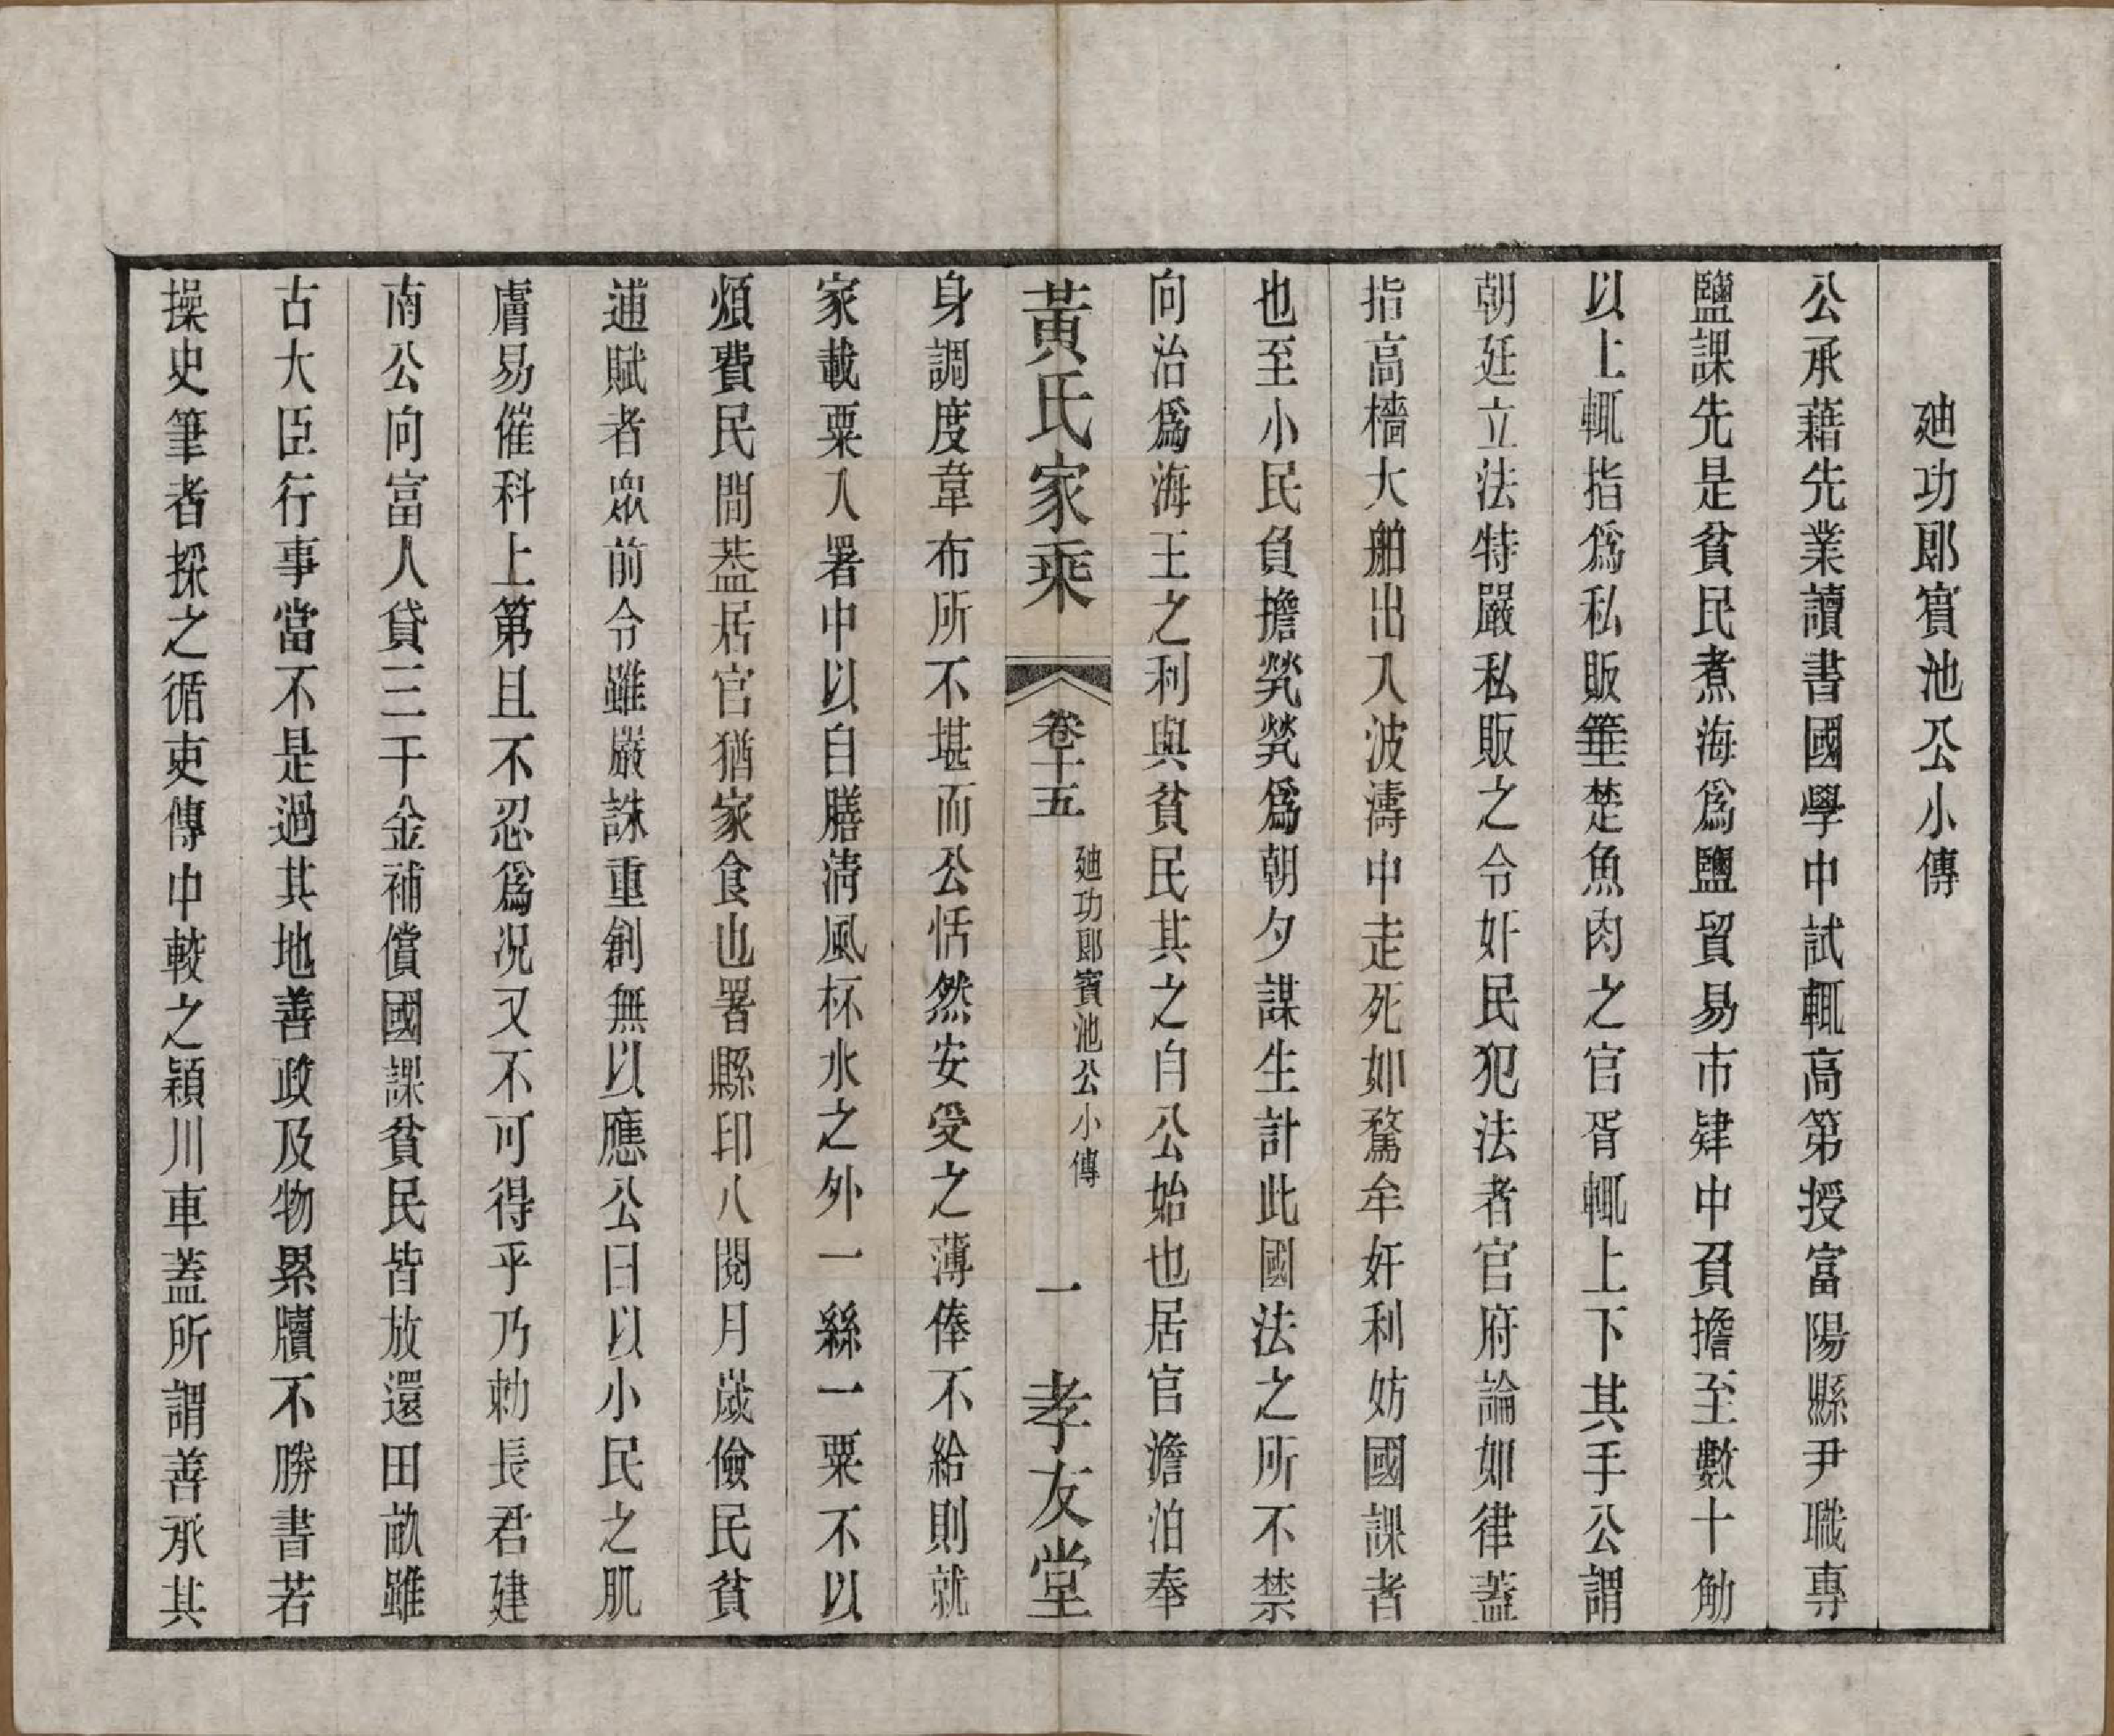 廸功郎賓池公小傳
公承藉先業讀書國學中試輒高第授富陽縣尹職專
鹽課先是貧民煮海爲鹽貿易市肆中負擔至數十觔
以上輒指爲私販箠楚魚肉之官胥輒上下其手公謂
朝廷立法特嚴私販之令奸民犯法者官府論如律蓋
指高檣大舶出入波濤中走死如鶩牟奸利妨國課者
也至小民負擔煢煢爲朝夕謀生計此國法之所不禁
向治爲海王之利與貧民其之自公始也居官澹泊奉
黃氏家乘 卷十五 廸功郎賓池公小傳 一 孝友堂
身調度韋布所不堪而公恬然安受之薄俸不給則就
家載粟入署中以自膳淸風杯水之外一絲一粟不以
煩費民間葢居官猶家食也署縣印八閱月歲儉民貧
逋賦者眾前令雖嚴誅重創無以應公曰以小民之肌
膚易催科上第且不忍爲況又不可得乎乃勑長君建
南公向富人貸三千金補償國課貧民皆放還田畝雖
古大臣行事當不是過其地善政及物累牘不勝書若
操史筆者採之循吏傳中較之穎川車蓋所謂善承其